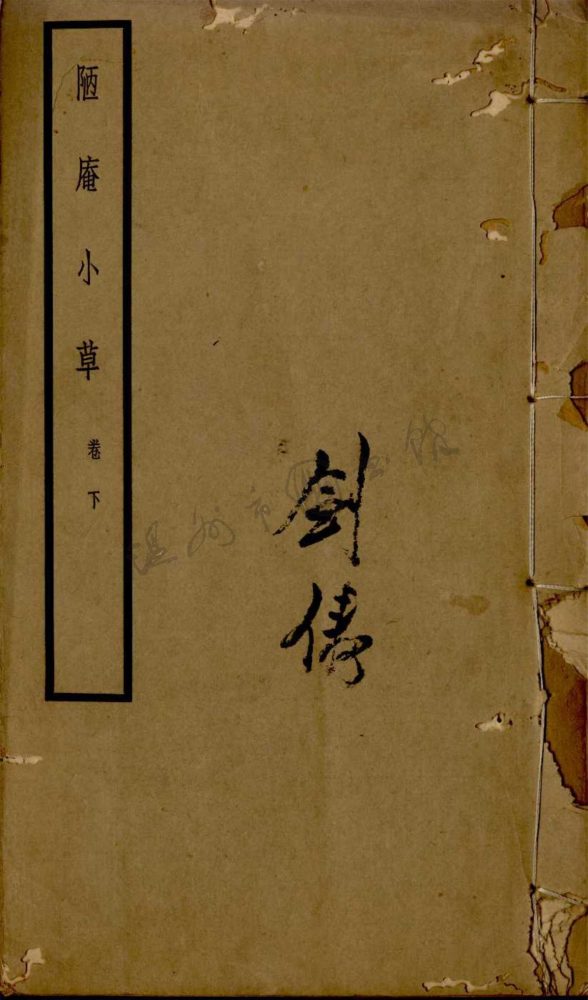 陋庵小草
卷下
剑俦
温州市图书馆